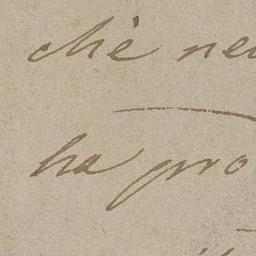 chè ne
ha pro